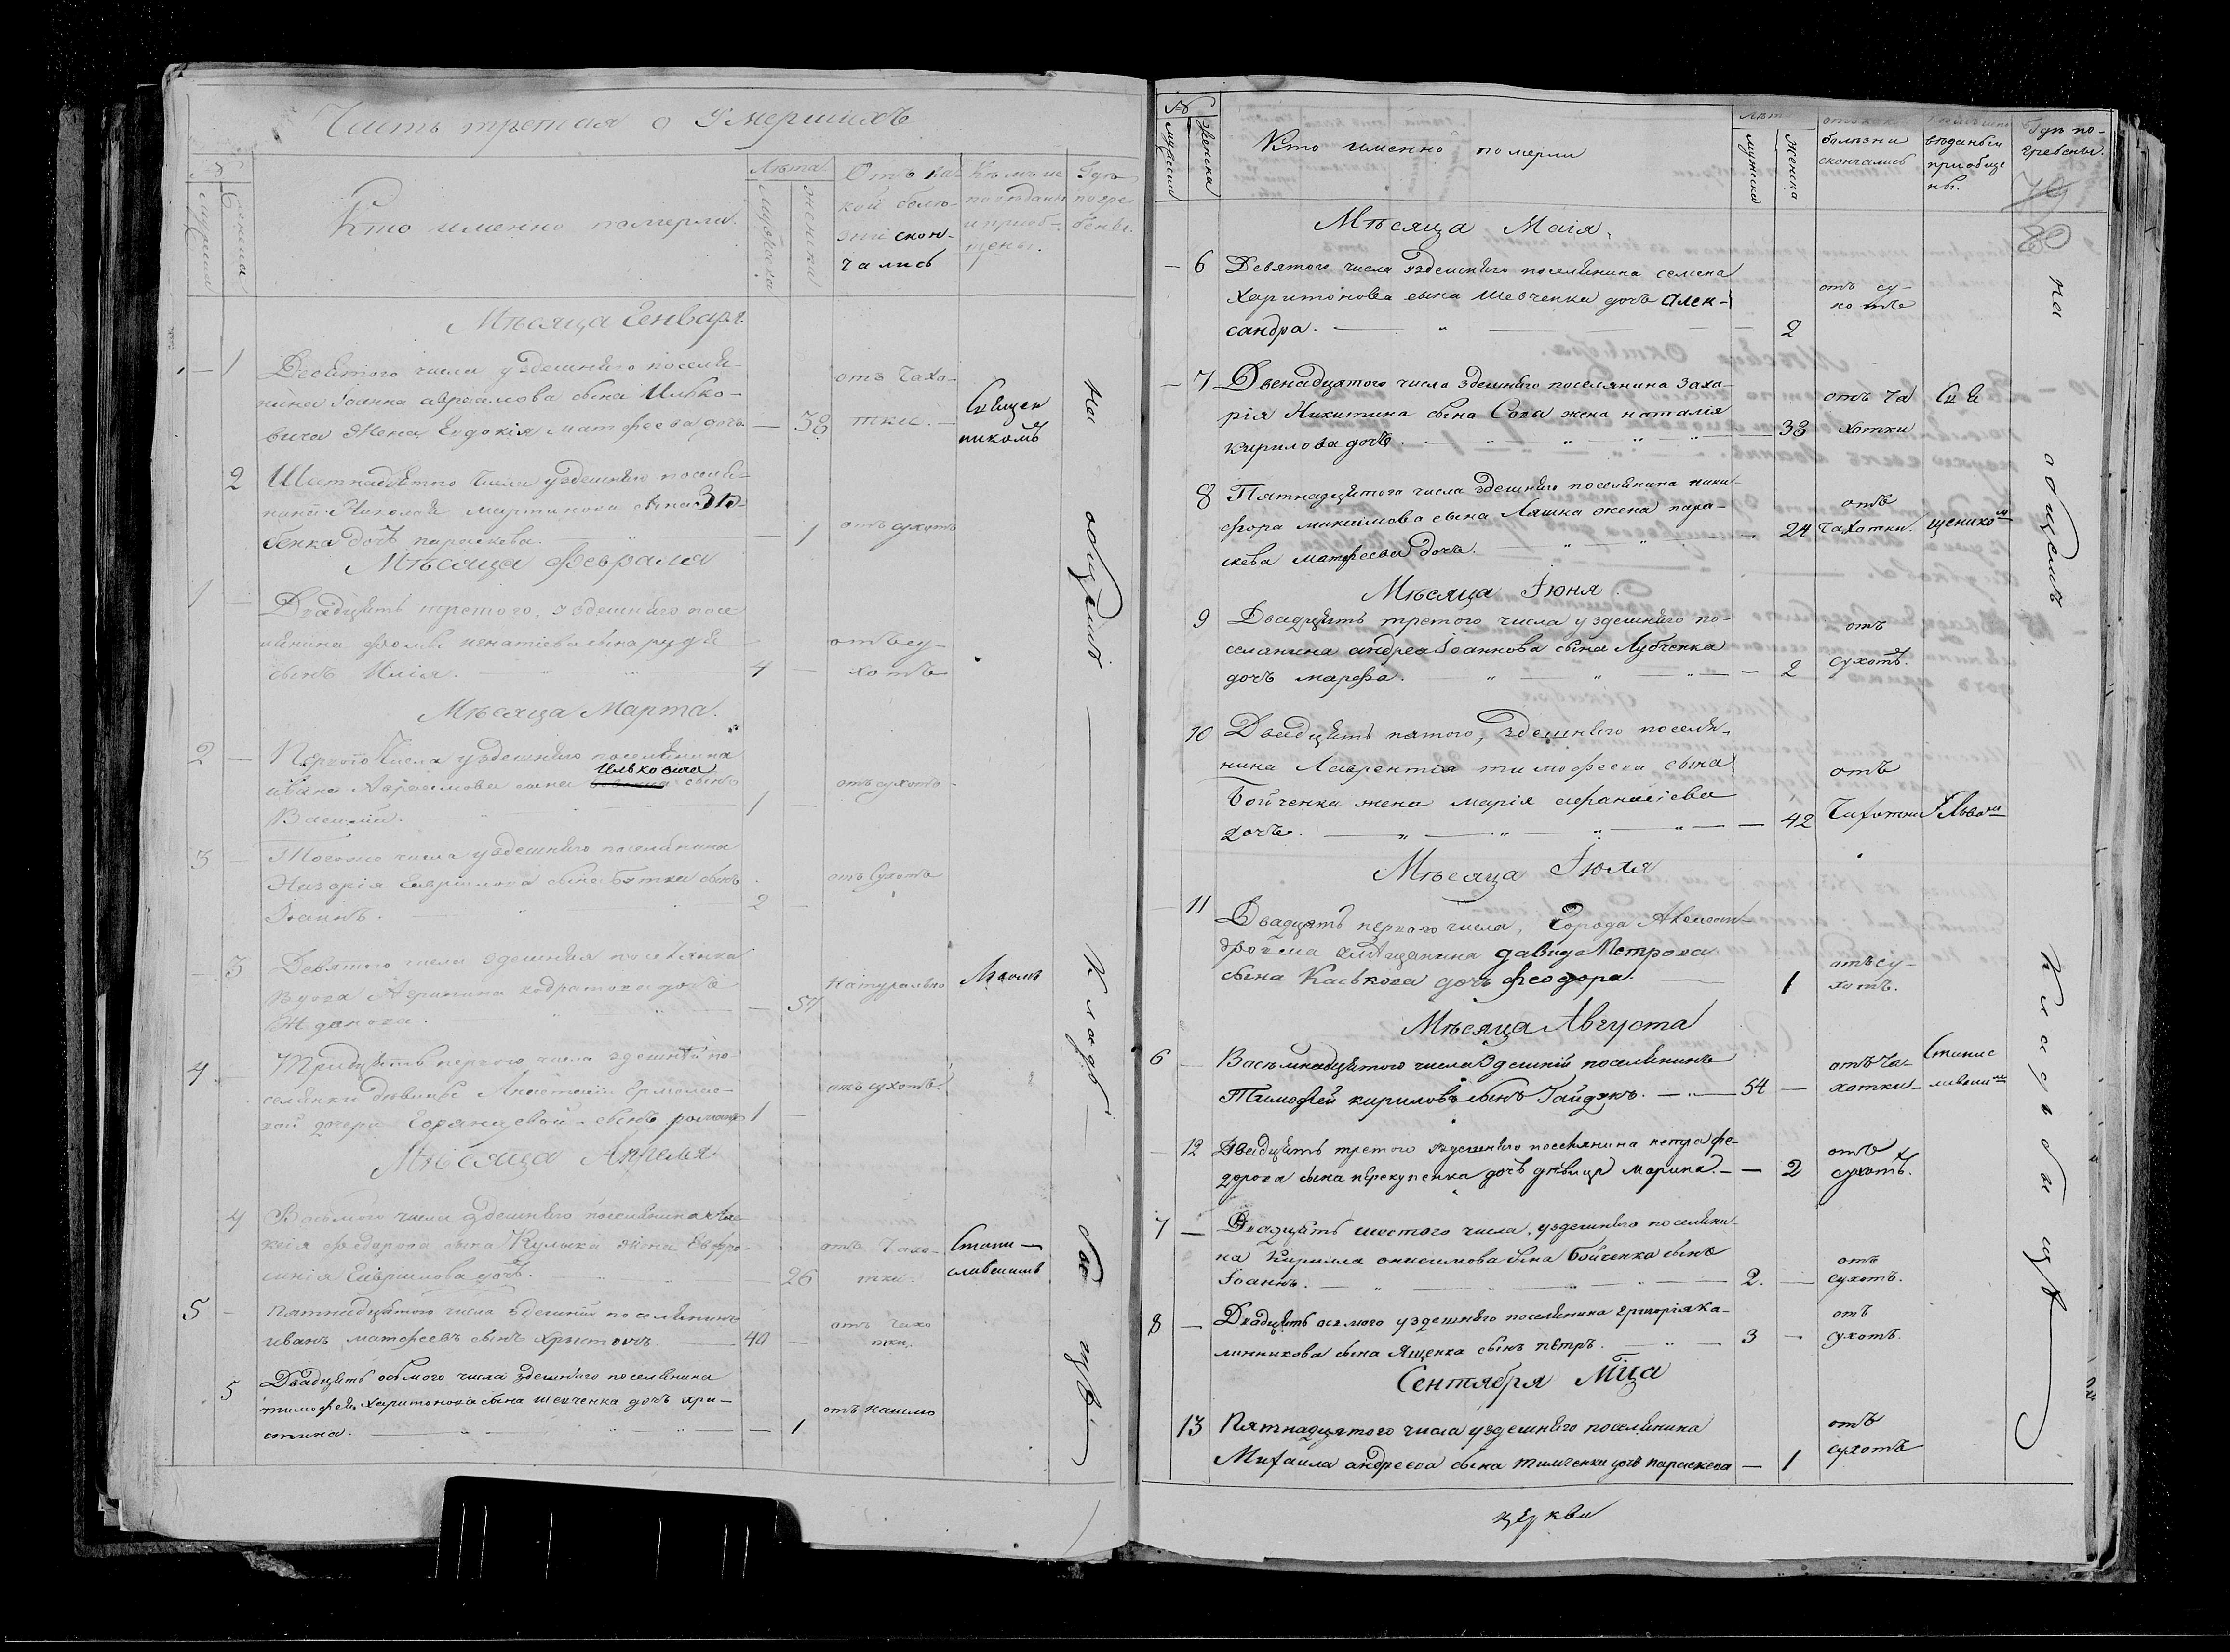 Часть третая о Умершихъ
№
Мужеска
Женска
Кто именно померли.
Лѣта
Мужеска
Женска
Отъ ка-
кой болѣ-
зни скон-
чались
Кѣмъ ис
повѣданы
и приоб-
щены.
Гдѣ
погре-
бены.
Мѣсяца Генваря.
— 1 Десятого числа уздешнѣго поселя-
нина Іоанна авраамова сына Илько-
вича Жена Евдокія матфеева дочь — 38 отъ Чахо-
тки. Священ
никомъ
2 Шестнадцятого числа уздешнѣго поселя-
нина Николая мартинова сына Зѣ-
бенка дочь параскева. — 1 отъ сухотъ
Мѣсяца Февраля
1 — Двадцять третого, уздешнѣго посе
лянина Фомы игнатіева сына рудя
сынъ Илія. 4 — отъ су-
хотъ
Мѣсяца Марта.
2 — Первого Числа уздешнѣго поселянина
Ивана Авраамова сына Ильковича сынъ
Василій. 1 — отъ сухотъ
3 — Тогожо числа уздешнѣго поселянина
Назарія Гавриилова сына Бутка сынъ
Іоаннъ. 2 — отъ Сухотъ
— 3 Девятого числа здешняя поселянка
вдова Агрипина кодратова дочь
Жданова. — 57 Натурально Львомъ
4 — Тридцять первого числа здешнѣй по-
селянки дѣвицы Анастасіи Ермолае-
вой дочери сынъ романъ 1 — отъ сухотъ.
Мѣсяца Апреля
4 Васьмого числа здешнѣго поселянина
Федорова сына Кулыка жена Евфро-
синія Гавриилова дочь. — 26 отъ Чахо-
тки. Стани-
славомъ
5 — пятнадцятого числа здешній поселянинъ
иванъ матфеевъ сынъ Христичъ. 40 — отъ чахо
тки.
5 Двадцять осьмого числа здешнѣго поселянина
тимофея Харитонова сына шевченка дочь хри-
стина. — 1 отъ кашлю
На общемъ — Кладбѣ
№
мужеска
женска
Кто именно померли
Лѣта
мужеска
женска
отъ какой
болѣзни
скончались
Кѣмъ испо
вѣданы и
приобще
ны.
Гдѣ по-
гребены.
79
80
Мѣсяца Маія.
— 6 Девятого числа уздешнѣго поселянина семена
Харитонова сына Шевченка дочь Алек-
сандра. — 2 отъ су-
хотъ
— 7 Двенадцятого числа здешнѣго поселянина заха-
рія Никитина сына Сова жена наталія
кирилова дочь. — 38 отъ ча
хотки Свя
8 Пятнадцятого числа здешнѣго поселянина ники-
фора максимова сына Ляшка жена пара-
скева матфеева дочь. — 24 отъ
чахотки. щенником
Мѣсяца Іюня.
9 Двадцять третого числа уздешнѣго по-
селянина андрея Іоаннова сына Лубченка
дочь марфа. — 2 отъ
сухотъ.
10 Двадцять пятого, здешнѣго поселя-
нина Лаврентія тимофеева сына
Бойченка жена марія афанасіева
дочь. — 42 отъ
Чахотки Львом
Мѣсяца Іюля
— 11 Двадцять первого числа, Города Александ-
Мещанина давида Петрова
сына Каськова дочь феодора. 1 отъ су-
хотъ.
Мѣсяца Августа
6 — Васьмнадцятого числа Здешній поселянинъ
Тимофей кириловъ сынъ Гайдукъ. 54 — отъ Ча-
хотки Станис
лавом
— 12 Двадцять третого уздешнѣго поселянина петра фе-
дорова сына перекупенка дочь дѣвица Марина. — 2 отъ
сухотъ.
7 — Двадцять шостого числа, уздешнѣго поселяни-
на Кирилла онисимова сына Бойченка сынъ
Іоаннъ. 2. — отъ
сухотъ.
8 — Двадцять осьмого уздешнѣго поселянина григорія ка-
линникова сына Ященка сынъ петръ. 3 — отъ
сухотъ.
Сентября Мца
13 Пятнадцятого числа уздешнѣго поселянина
Михаила андреева сына тимченка дочь параскева — 1 отъ
сухотъ
на общемъ Кладбищѣ
церкви